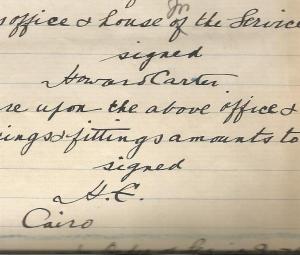 office & house of the Service
signed
Howard Carter.
re upon the above office &
ings & fittings amounts to
signed
H.C.
Cairo